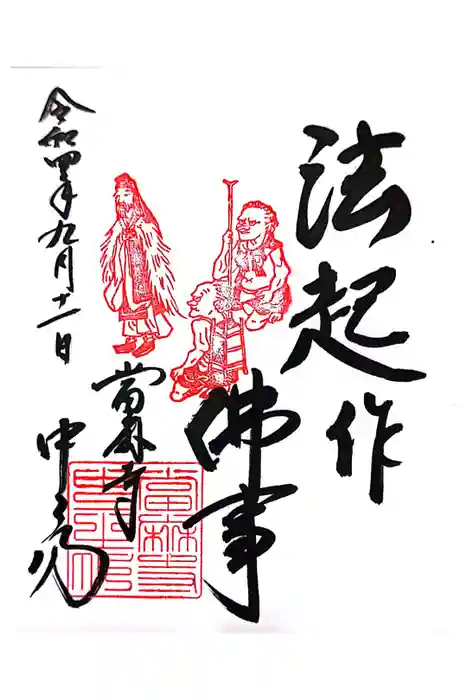 法起作
佛事
當麻寺
中之坊
令和四年九月十一日